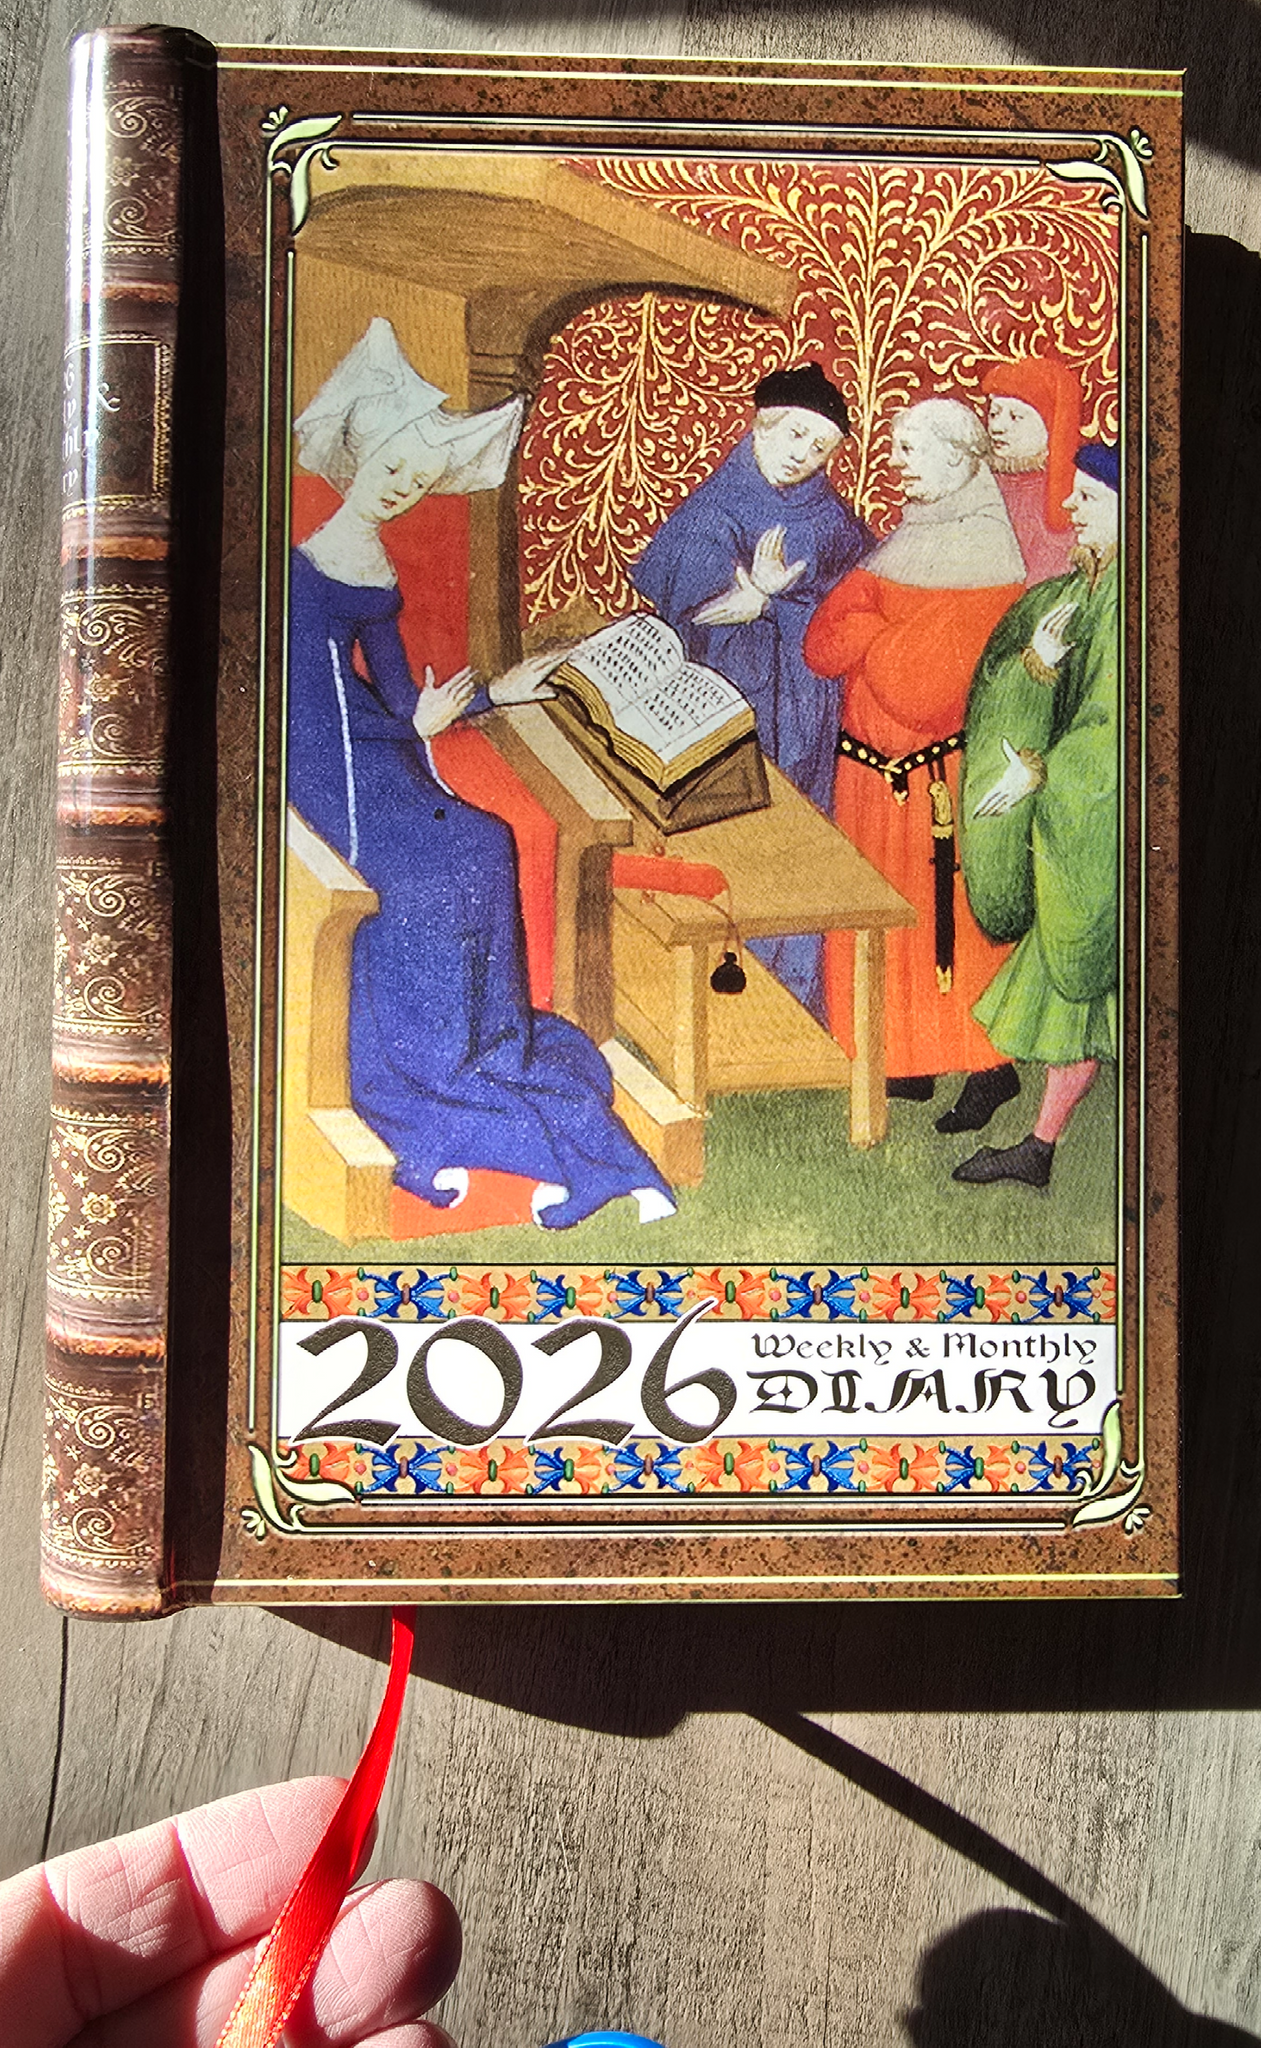 2026
Weekly & Monthly
DIARY
&